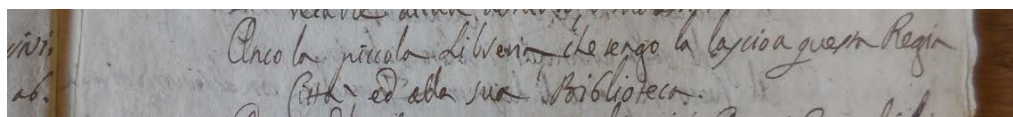 Anco la piccola Libreria, che tengo la lascio a questa Regia
Città ed alla sua Biblioteca.